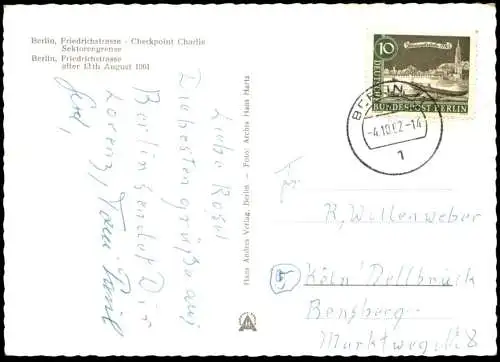 Berlin, Friedrichstrasse - Checkpoint Charlie
Sektorengrenze
Berlin, Friedrichstrasse
after 13th August 1961
Liebe Rosel
Liebesten grüße aus
Berlin sendet Dir
Lorenz,
Hans Andres Verlag, Berlin - Foto: Archiv Hans Hartz
10
DEUTSCHE
BUNDESPOST BERLIN
BERLIN
-4.10.62-14
1
R, Willenweber
Köln Dellbrück
Bensberg-
Marktweg